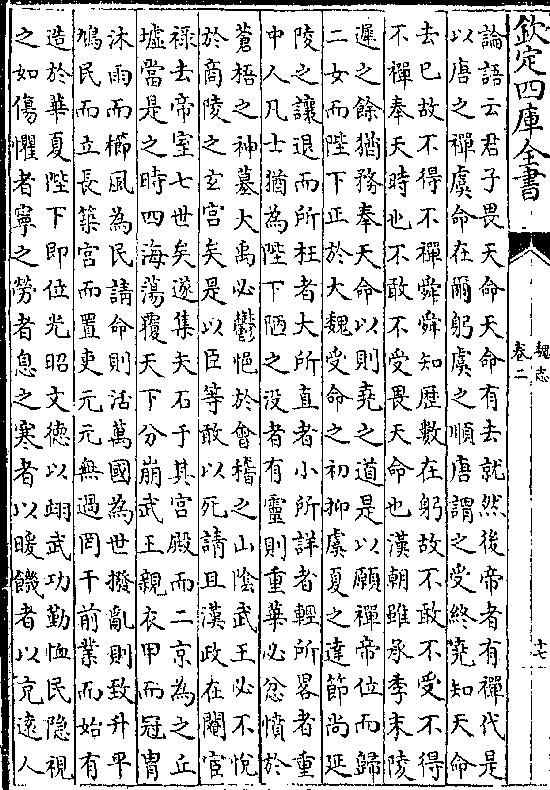 欽定四庫全書
魏志
卷二
十七
論語云君子畏天命天命有去就然後帝者有禪代是
以唐之禪虞命在爾躬虞之順唐謂之受終堯知天命
去已故不得不禪舜舜知歷數在躬故不敢不受不得
不禪奉天時也不敢不受畏天命也漢朝雖承季末陵
遲之餘猶務奉天命以則堯之道是以願禪帝位而歸
二女而陛下正於大魏受命之初抑虞夏之達節尚延
陵之讓退而所枉者大所直者小所詳者輕所畧者重
中人凡士猶為陛下陋之沒者有靈則重華必忿憤於
蒼梧之神墓大禹必鬱悒於會稽之山陰武王必不悅
於商陵之玄宮矣是以臣等敢以死請且漢政在閹宦
祿去帝室七世矣遂集矢石于其宮殿而二京為之丘
墟當是之時四海蕩覆天下分崩武王親衣甲而冠胄
沐雨而櫛風為民請命則活萬國為世撥亂則致升平
鳩民而立長築宮而置吏元元無過罔于前業而始有
造於華夏陛下即位光昭文德以翊武功勤恤民隱視
之如傷懼者寧之勞者息之寒者以暖饑者以充遠人